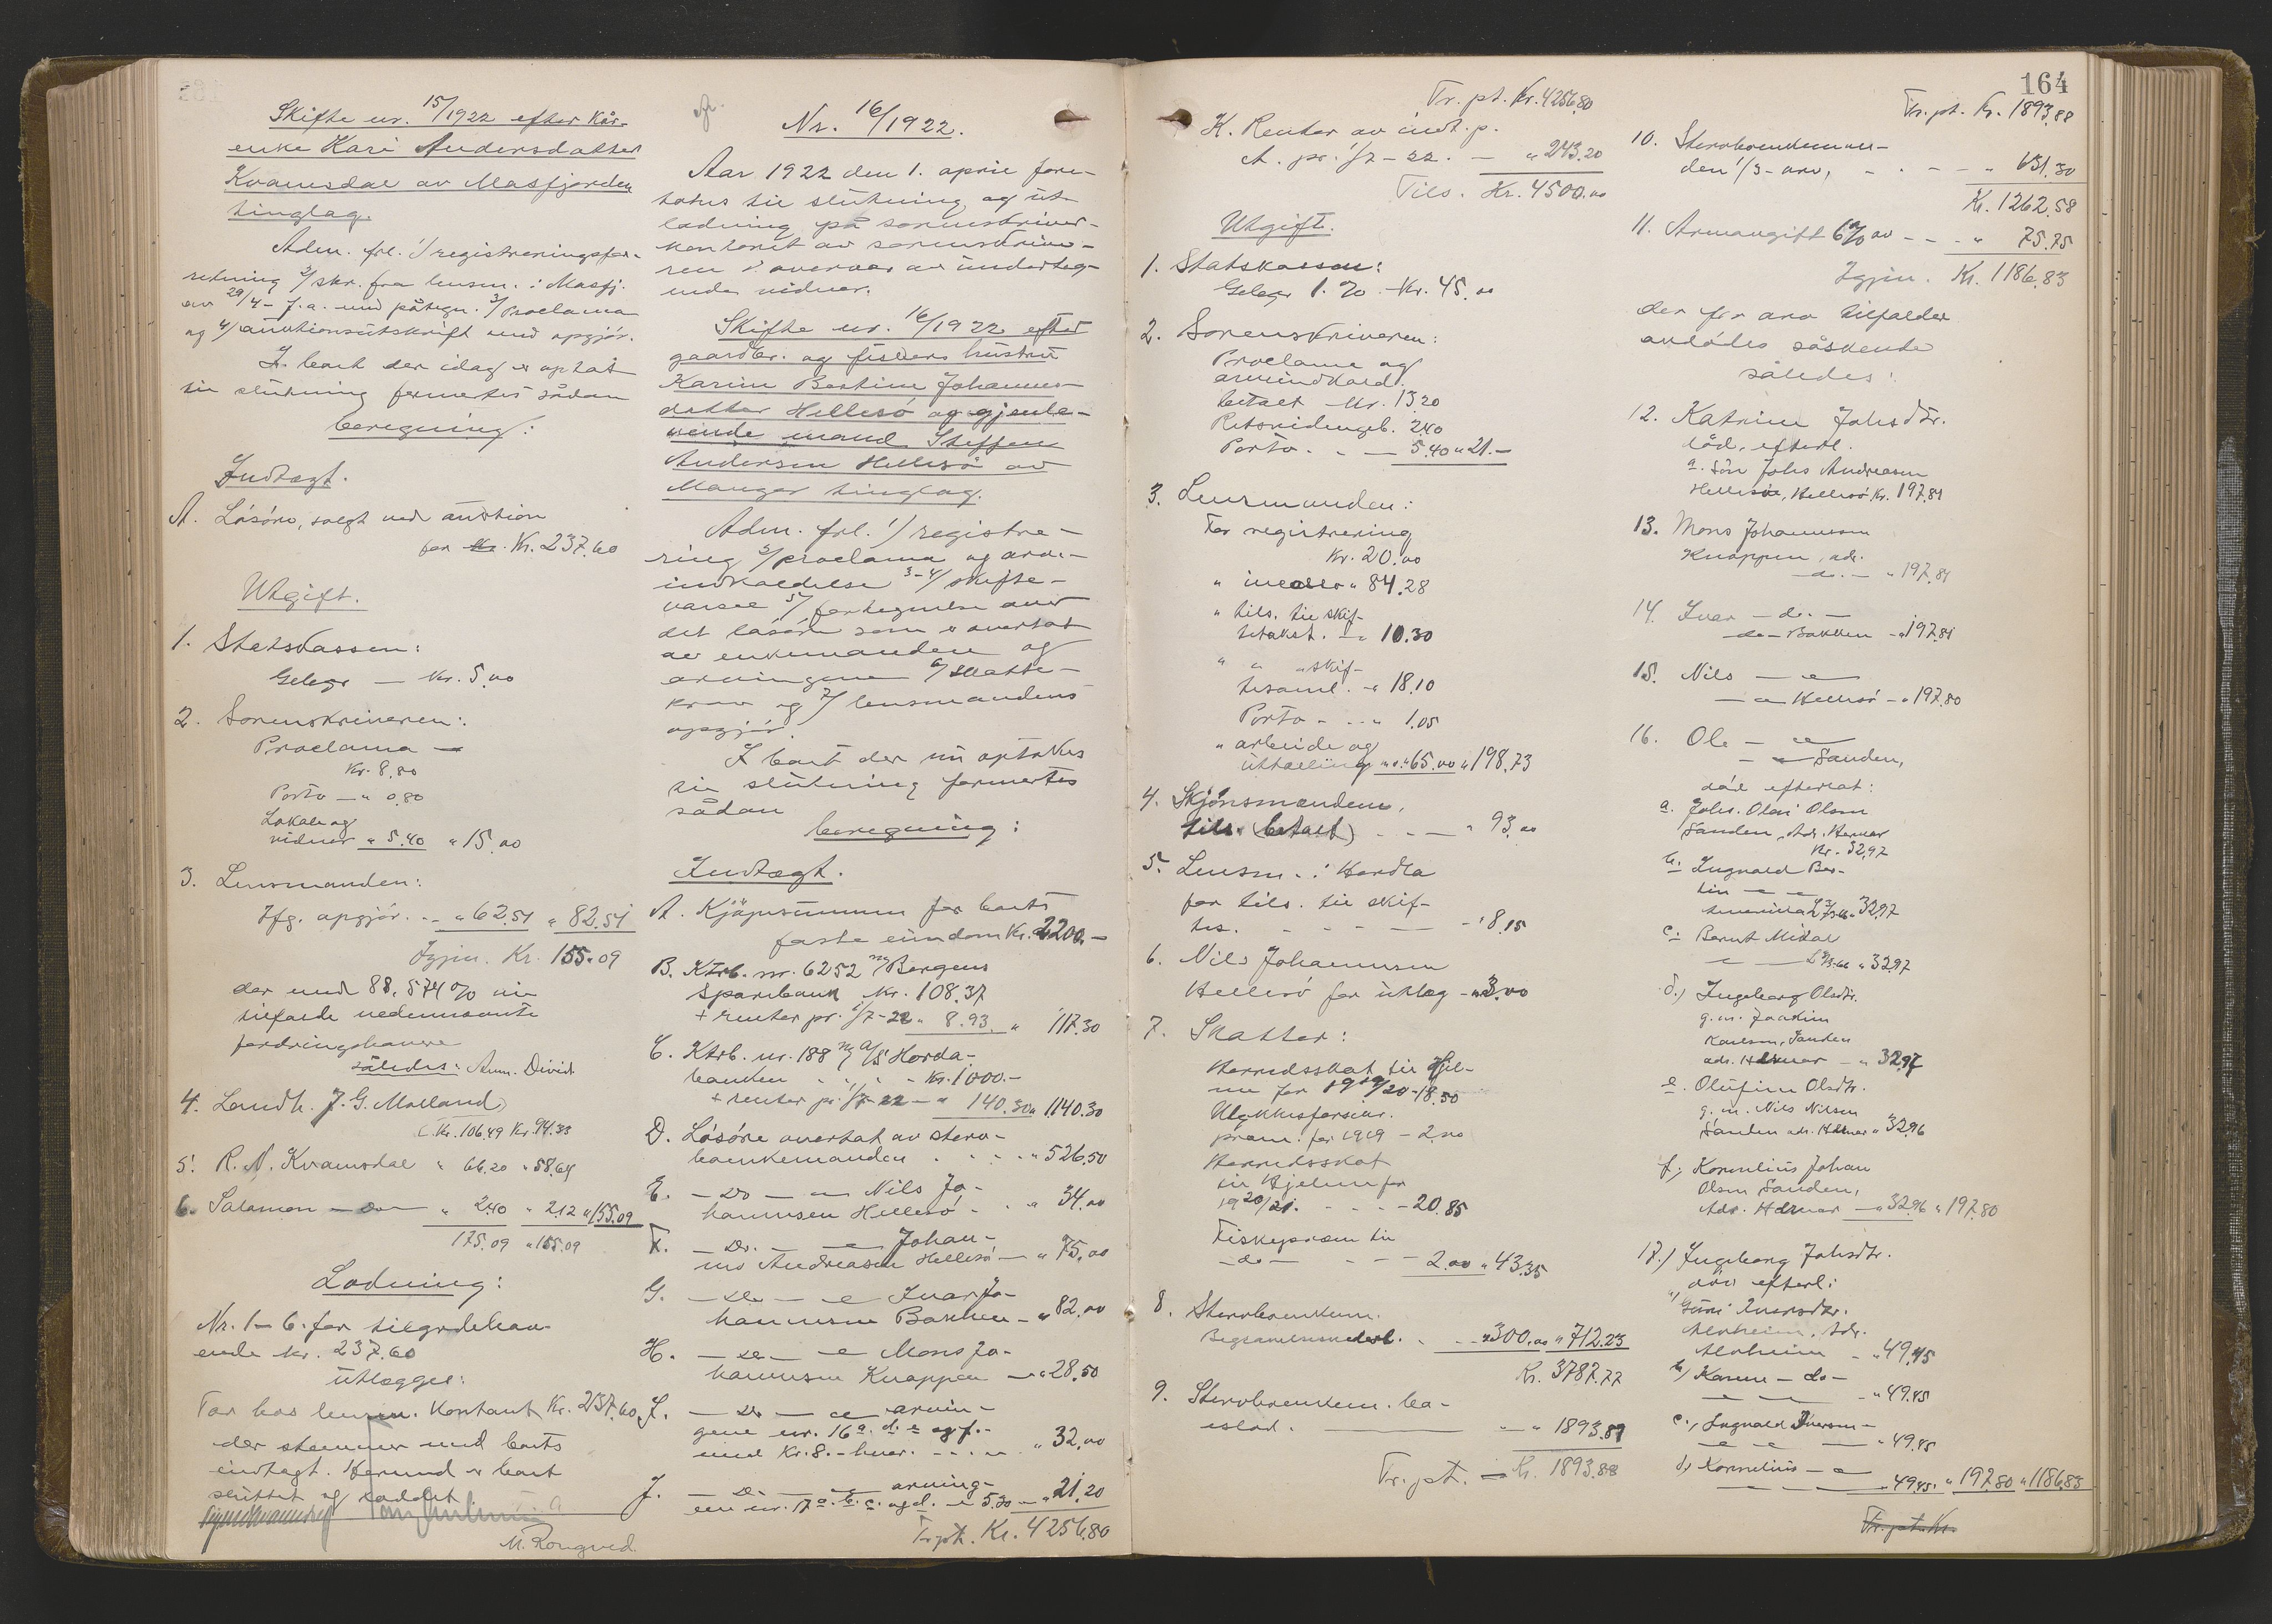 Skifte nr. 15/1922 efter kår-
enke Kari Andersdatter
Kvamsdal av Masfjorden
tinglag.
Adm. frl. 1/ registreringsfor-
retning 2/ skr. fra lensm. i Masfj.
av 29/4 - f.a. med påtegn. 3/ Proclama
og 4/ auktionsutskrift med opgjør.
I boet der idag er optat
til slutning formertes sådan
beregning:
Indtægt.
A. Løsøre, solgt ved auktion
for Kr. 237.60
Utgift.
1. Statskassen:
Gebyr — Kr. 5.00
2. Sorenskriveren:
Proclama —
Kr. 8.80
Porto — " 0.80
Lokale og
vidner " 5.40 " 15.00
3. Lensmanden:
Ifg. opgjør. — " 62.51 " 82.51
Igjen. Kr. 155.09
der med 88.574 % vil
tilfalde nedennævnte
fordringshavere
således: Anm. Divid.
4. Landh. J. G. Molland
Kr. 106.49 Kr. 94.33
5. R. N. Kvamsdal " 66.20 " 58.64
6. Salamon — do — " 2.40 " 2.12 " 155.09
175.09 " 155.09
Lodning:
Nr. 1–6. for tilgodehav-
ende kr. 237.60
utlægges:
For hos lensm. Kontant Kr. 237.60
der stemmer med boets
indtægt. Hermed er boet
sluttet og loddet.
M. Rongved.
Nr. 16/1922.
Aar 1922 den 1. april fore-
toges til slutning og ut-
lodning på sorenskriver-
kontoret av sorenskrive-
ren i overvær av underteg-
nede vidner.
Skifte nr. 16/1922 efter
gaardbr. og fiskers hustru
Karin Bertine Johannes-
datter Hellesø og gjenle-
vende mand Steffen
Andersen Hellesø av
Manger tinglag.
Adm. frl. 1/ registre-
ring 2/ proclama og arve-
indkaldelse 3-4/ skifte-
varsel 5/ fortegnelse over
det løsøre som er overtat
av enkemanden og
arvingene 6/ skatte-
krav og 7/ lensmandens
opgjør.
I boet der nu optakes
til slutning formertes
sådan
beregning:
Indtægt.
A. Kjøpesummen for boets
faste eiendom Kr. 2200.—
B. Ktrb. nr. 6252 m/ Bergens
Sparebank Kr. 108.37
+ renter pr. 1/7-22 " 8.93 " 117.30
C. Ktrb. nr. 188 m/ A/S Horda-
banken - Kr. 1000.—
+ renter pr. 1/7-22 — " 140.30 " 1140.30
D. Løsøre overtat av sterv-
boenkemanden " 526.50
E. — do — Nils Jo-
hannesen Hellesø " 34.00
F. — do — Johan-
nes Andreasen Hellesø — " 75.00
G. — do — Ivar Jo-
hannesen Bakken — " 82.00
H. — do — Mons Jo-
hannesen Knappen — " 28.50
I. — do — arvin-
gene nr. 16 a. d. e og f.
med Kr. 8.— hver. " 32.00
J. — do — arving-
ene nr. 17 a. b. c. og d. — 5.30 — " 21.20
Trpt. Kr. 4256.80
164
Tr. pt. Kr. 4256.80
K. Renter av indt. p.
A. pr. 1/7-22. — " 243.20
Tils. Kr. 4500.00
Utgift.
1. Statskassen:
Gebyr 1 % Kr. 45.00
2. Sorenskriveren:
Proclama og
arveindkald.
betalt Kr. 13.20
Retsvidnegeb. 2.40
Porto. — 5.40 " 21.—
3. Lensmanden:
For registrering
Kr. 20.00
" incasso " 84.28
" tils. til skif-
tetakst. — " 10.30
" " " skif-
tesaml. — " 18.10
Porto " 1.05
" arbeide og
uttælling " 65.00 " 198.73
4. Skjønsmændene,
tils. (betalt) — " 93.00
5. Lensm. i Herdla
for tils. til skif-
tes. — " 8.15
6. Nils Johannesen
Hellesø for utlæg — " 3.00
7. Skatter:
Herredsskat til Hjel-
me for 1919/20 - 18.50
Ulykkesforsikr.
præm. for 1919 — 2.00
Herredsskat
til Hjelme for
1920/21. - 20.85
Fiskepræm til
— do — 2.00 " 43.35
8. Stervboenkem.
Begravelseskoderl. " 300.00 " 712.23
Kr. 3787.77
9. Stervboenkem. bo-
eslod. — " 1893.89
Tr. pt. — Kr. 1893.88
Tr. pt. Kr. 1893.88
10. Stervboenkeman-
den 1/3 - arv, — " 631.30
Kr. 1262.58
11. Arveavgift 6 % av " 75.75
Igjen. Kr. 1186.83
der for arv tilfalder
avdødes søskende
således:
12. Katrine Johsdtr.
død, efterl.
a. Søn Johs Andreasen
Hellesø, Hellesø Kr. 197.81
13. Mons Johannesen
Knappen, adr.
— do. — " 197.81
14. Ivar — do. —
— do — Bakken — " 197.81
15. Nils —
— Hellesø — " 197.80
16. Ole —
— Sanden,
død efterlat:
a. Johs. Olai Olsen
Sanden, Adr. Hernar
Kr. 32.97
b. Ingvald Ber-
tin —
" 32.97
c. Bernt Mikal
" 32.97
d.) Ingeborg Olsdtr.
g. m. Joakim
Karlsen, Sanden
adr. Hernar — " 32.97
e. Olufine Olsdtr.
g. m. Nils Nilsen
Sanden adr. Hernar " 32.96
f.) Kornelius Johan
Olsen Sanden,
Adr. Hernar — " 32.96 " 197.80
17.) Ingeborg Johsdtr.
død efterl:
a) Guri Iversdtr.
Alvheim, Adr.
Alvheim — " 49.45
b.) Karen — do —
— " 49.45
c.) Ingvald Iversen —
— " 49.45
d.) Kornelius —
— " 49.45 " 197.80 " 1186.83
Tr. pt. Kr.